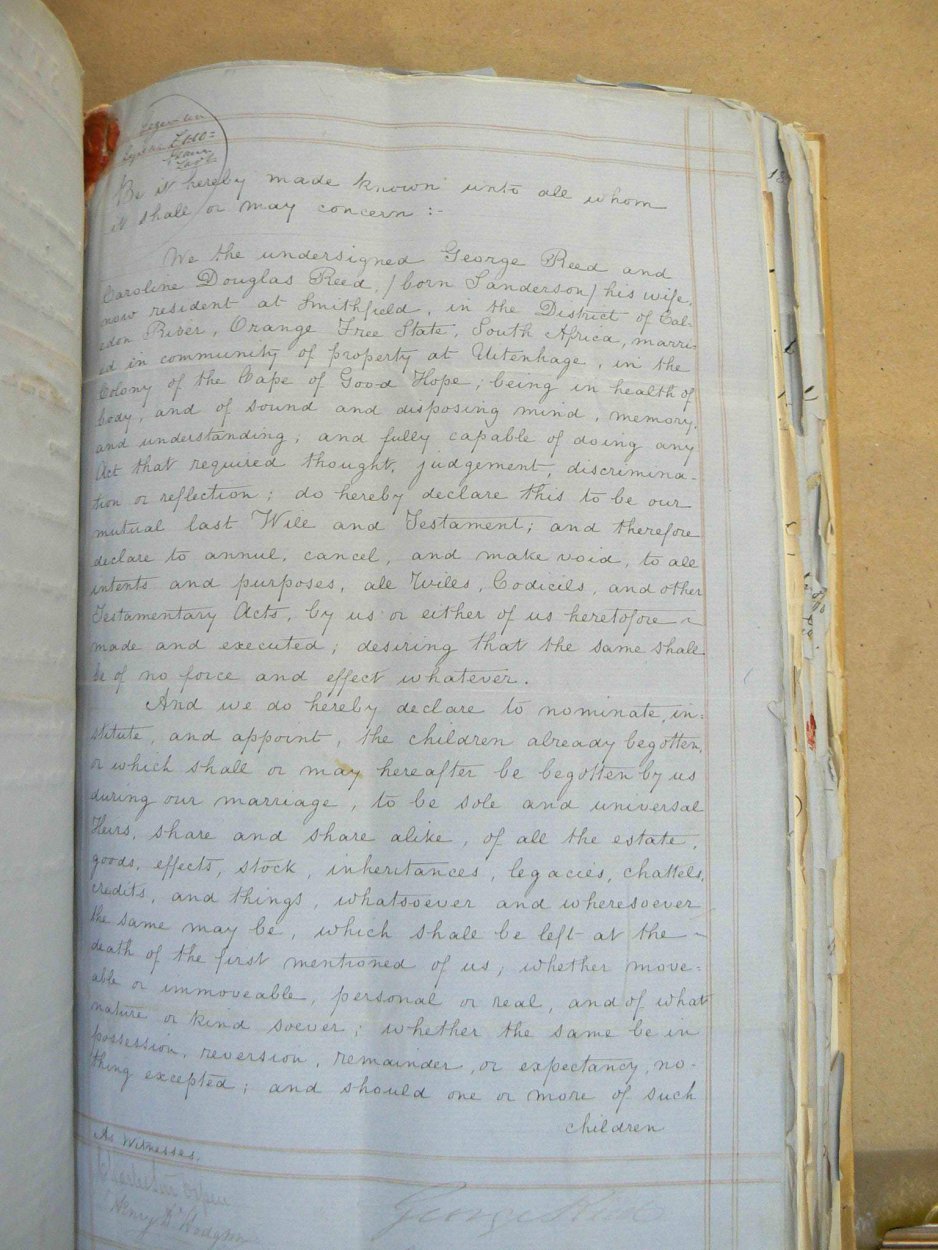 Be it hereby made known unto all whom
it shall or may concern :-
We the undersigned George Reed and
Caroline Douglas Reed, / born Sanderson / his wife,
now resident at Smithfield, in the District of Cal-
edon River, Orange Free State, South Africa, marri-
ed in community of property at Uitenhage, in the
Colony of the Cape of Good Hope; being in health of
body, and of sound and disposing mind, memory,
and understanding; and fully capable of doing any
Act that required thought, judgement, discrimina-
tion or reflection; do hereby declare this to be our
mutual last Will and Testament; and therefore
declare to annul, cancel, and make void, to all
intents and purposes, all Wills, Codicils, and other
Testamentary Acts, by us or either of us heretofore ~
made and executed; desiring that the same shall
be of no force and effect whatever.
And we do hereby declare to nominate, in:
stitute, and appoint, the children already begotten,
or which shall or may hereafter be begotten by us
during our marriage, to be sole and universal
Heirs, share and share alike, of all the estate,
goods, effects, stock, inheritances, legacies, chattels,
credits, and things, whatsoever and wheresoever
the same may be, which shall be left at the ~
death of the first mentioned of us; whether move:
able or immoveable, personal or real, and of what
nature or kind soever; whether the same be in
possession, reversion, remainder, or expectancy, no-
thing excepted; and should one or more of such
children
As Witnesses.
George Reed
Henry